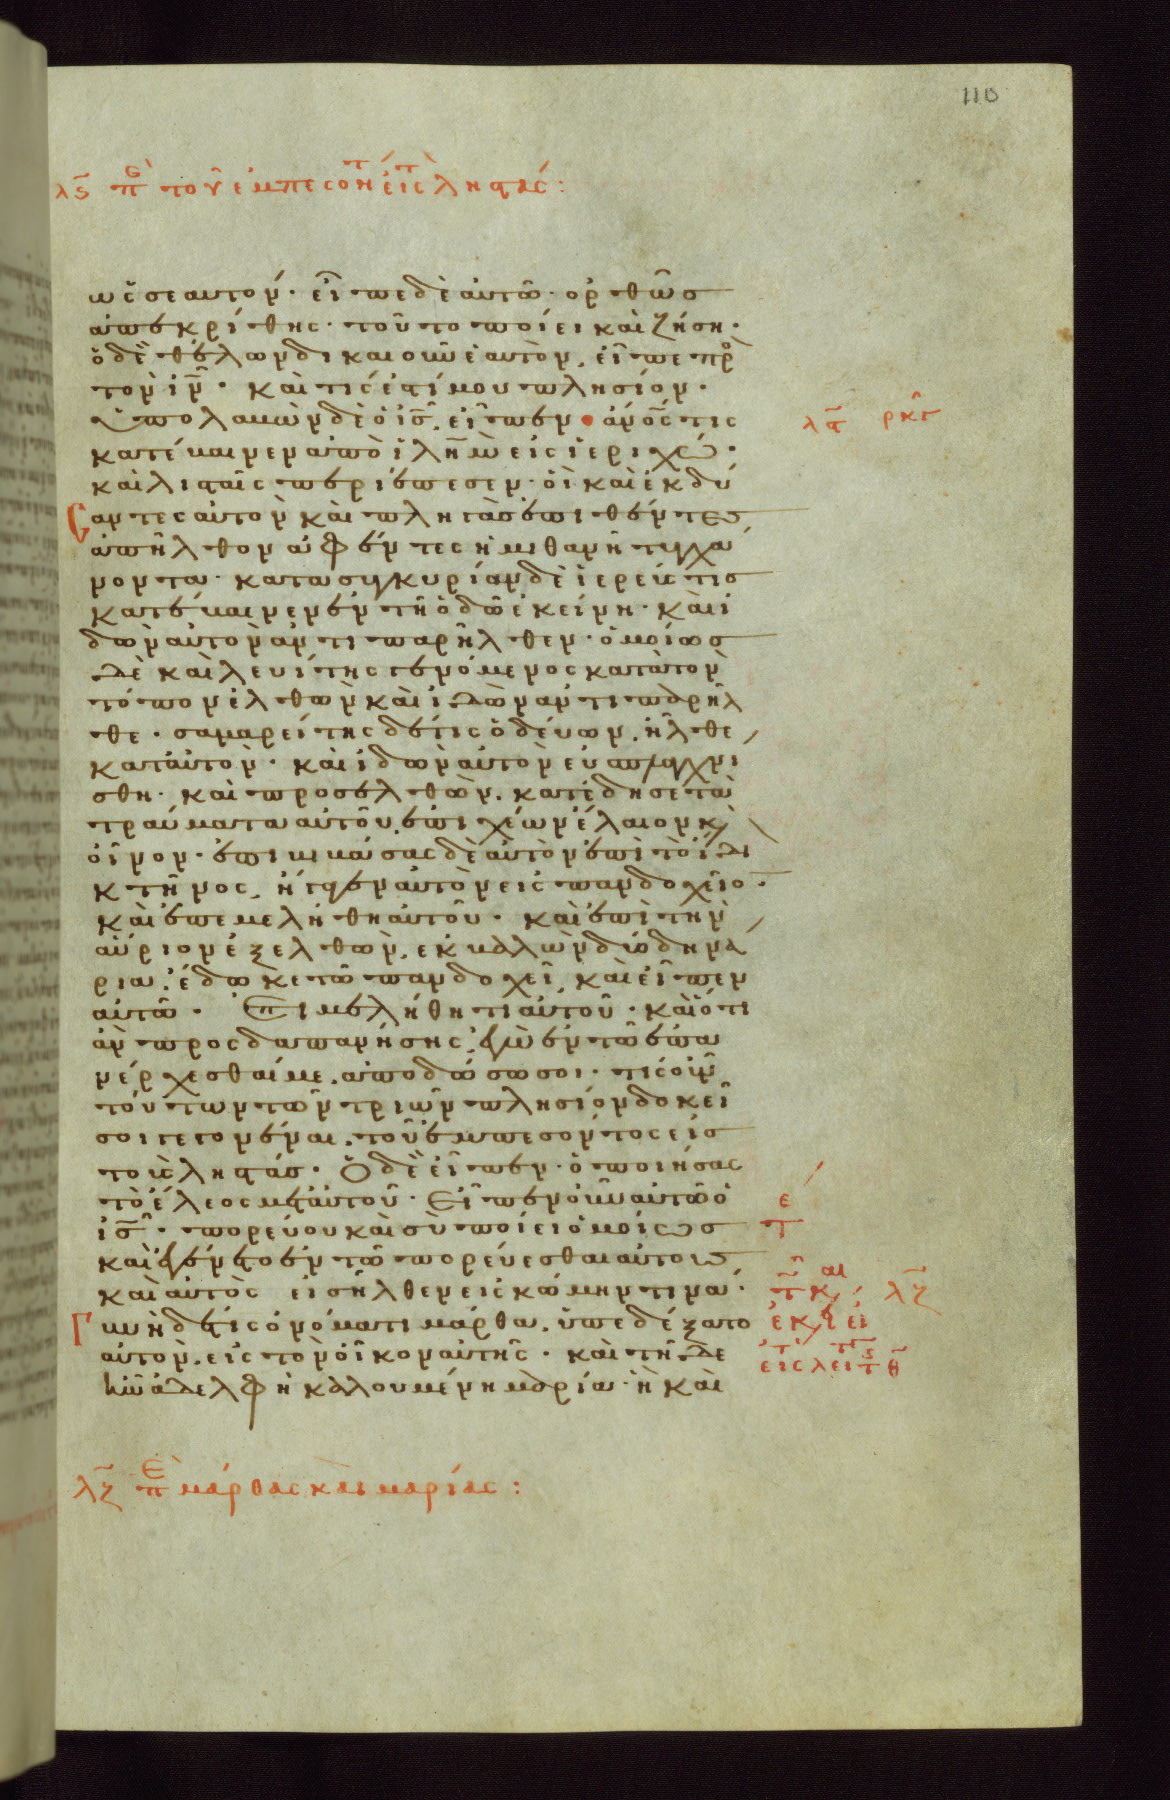 110
λϛ π τοῦ ἐμπεσοντ εἰς ληστάς :
ὡς σεαυτόν· εἶπε δὲ αὐτῶ· ὀρθῶσ
ἀπεκρίθης· τοῦτο ποίει καὶ ζήση·
ὁ δὲ θέλων δικαιοῦν ἑαυτὸν, εἶπε πρὸ
τὸν ἰν̅· καὶ τίς ἐστί μου πλησίον·
ὑπολαβὼν δὲ ὁ ἰς̅, εἶπεν· ἄνο̅ς τις
κατέβαινεν ἀπὸ ἱλη̅μ εἰς ἱεριχώ·
καὶ λισταῖς περιέπεσεν· οἳ καὶ ἐκδύ
σαντες αὐτὸν καὶ πληγὰσ ἐπιθέντεσ,
ἀπῆλθον ἀφέντες ἡμιθανῆ τυγχά
νοντα· κατα συγκυρίαν δὲ ἱερεύς τισ
κατέβαινεν ἐν τῆ ὁδῶ ἐκείνη· καὶ ἰ
δὼν αὐτὸν ἀντιπαρῆλθεν· ὁμοίωσ
δὲ καὶ λευίτης γενόμενος κατὰ τὸν
τόπον ἐλθὼν καὶ ἰδὼν ἀντιπαρῆλ
θε· σαμαρείτης δέ τις ὁδεύων, ἦλθε
κατ αὐτὸν· καὶ ἰδὼν αὐτὸν ἐυσπλαγχνί
σθη· καὶ προσελθὼν, κατέδησε τὰ
τραύματα αὐτοῦ, ἐπιχέων ἔλαιον κ
οἶνον· ἐπιβιβάσας δὲ αὐτὸν ἐπὶ τὸ ἴδι
κτῆνος, ἤγαγεν αὐτὸν εἰς πανδοχεῖο·
καὶ ἐπεμελήθη αὐτοῦ· καὶ ἐπὶ τὴν
αὔριον ἐξελθὼν, ἐκβαλὼν δύο δηνά
ρια, ἔδωκε τῶ πανδοχεῖ, καὶ εἶπεν
αὐτῶ· Ἐπιμελήθητι αὐτοῦ· καὶ ὅτι
ἂν προσδαπανήσης, ἐγὼ ἐν τῶ ἐπα
νέρχεσθαί με, ἀποδώσω σοι· τίς οὖν
τούτων τῶν τριῶν πλησίον δοκεῖ
σοι γεγονέναι, τοῦ ἐμπεσόντος εἰσ
τοὺς ληστάσ· Ὁ δὲ εἶπεν· ὁ ποιήσας
τὸ ἔλεος μετ αὐτοῦ· Εἶπεν οὖν αὐτῶ ὁ
ἰς̅· πορεύου καὶ σὺ ποίει ὁμοίωσ
καὶ ἐγένετο ἐν τῶ πορεύεσθαι αὐτοὺσ,
καὶ αὐτὸς εἰσῆλθεν εἰς κώμην τινά·
Γυνὴ δέ τις ὀνόματι μάρθα, ὑπεδέξατο
αὐτὸν, εἰς τὸν οἶκον αὐτῆς· καὶ τῆδε
ἦν ἀδελφὴ καλουμένη μαρία· ἣ καὶ
λζ π μάρθας καὶ μαρίας :
λζ